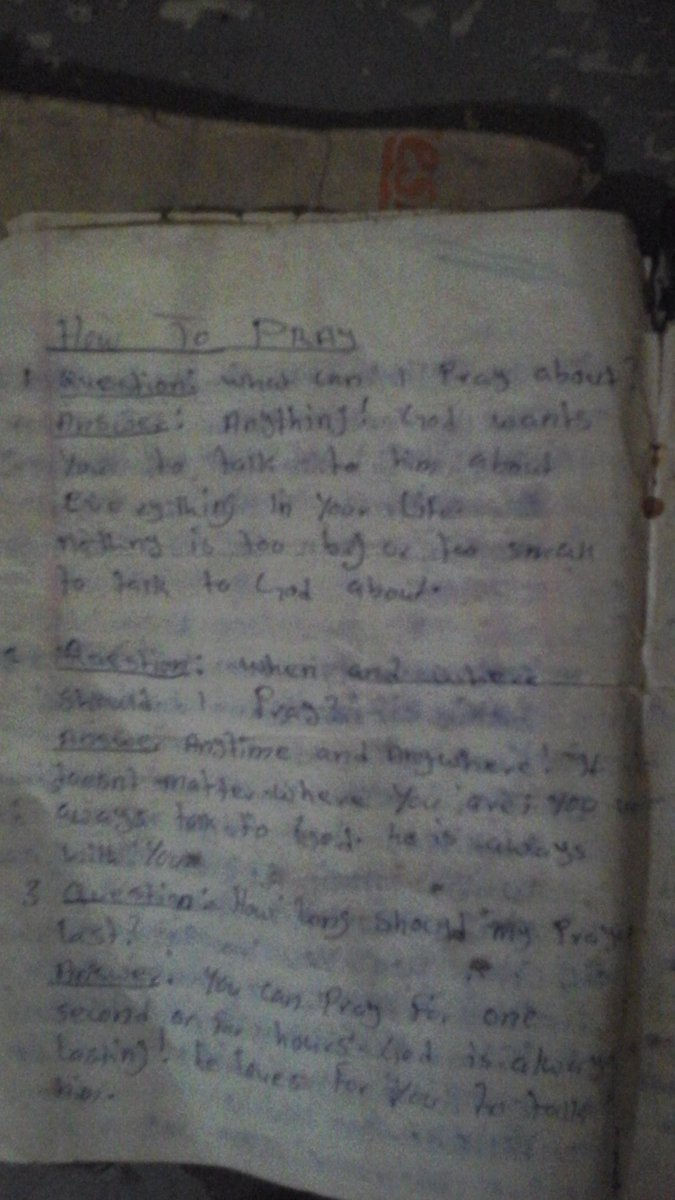 How To PRAY
1 Question: what can I Pray about?
Answer: Anything! God wants
You to talk to him about
everything in your life
nothing is too big or too small
to talk to God about.
Question: when and where
should I Pray?
Answer Anytime and Anywhere! It
doesnt matter where You are; you
always talk to God. he is always
with You
3 Question: How long should my Pray
last?
Answer: You can Pray for one
second or for hours God is alway
Lasting! he loves for You to talk
him.